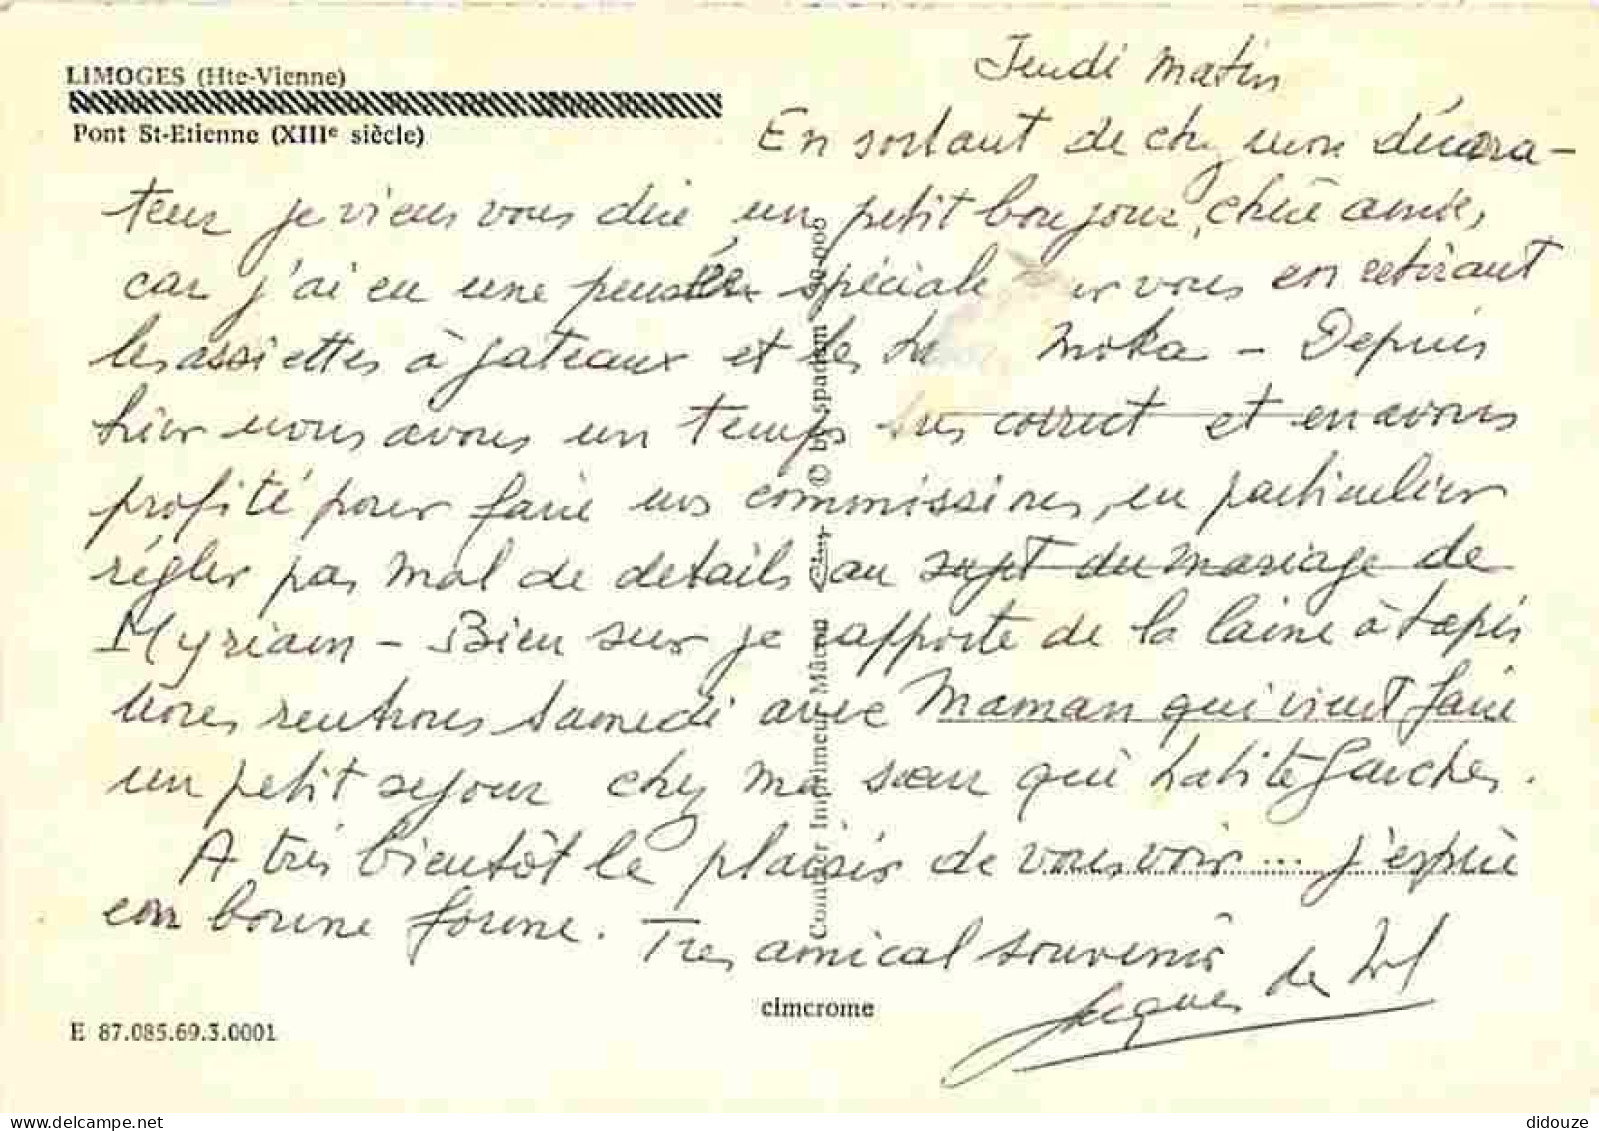 LIMOGES (Hte-Vienne)
Pont St-Etienne (XIIIe siècle)
Jeudi matin
En sortant de chez mon décora-
teur je viens vous dire un petit bonjour, chère amie,
car j'ai eu une pensée spéciale pour vous en retirant
les assiettes à gateaux et les moka - Depuis
hier nous avons un temps très correct et en avons
profité pour faire nos commissions, en particulier
régler pas mal de details au sujet du mariage de
Myriam - Bien sur je apporte de la laine à tapis
nous rentrons samedi avec Maman qui vient faire
un petit sejour chez ma sœur qui habite Garches.
A très bientôt le plaisir de vous voir ... j'espère
en bonne forme. Très amical souvenir
Jacques de
cimcrome
E 87.085.69.3.0001
Combier Imprimeur Mâcon Cim © by spadem
delcampe.net
didouze